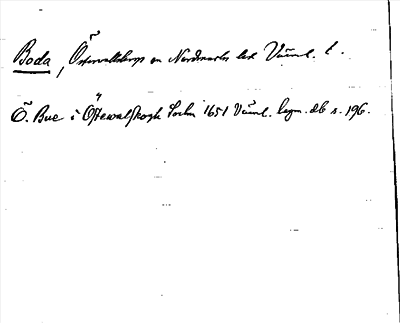 Boda, Östervallskogs sn Nordmarks hd Värml. l.
Ö. Bue i Östewalskogh Sochn 1651 Värml. legm. db s. 196.